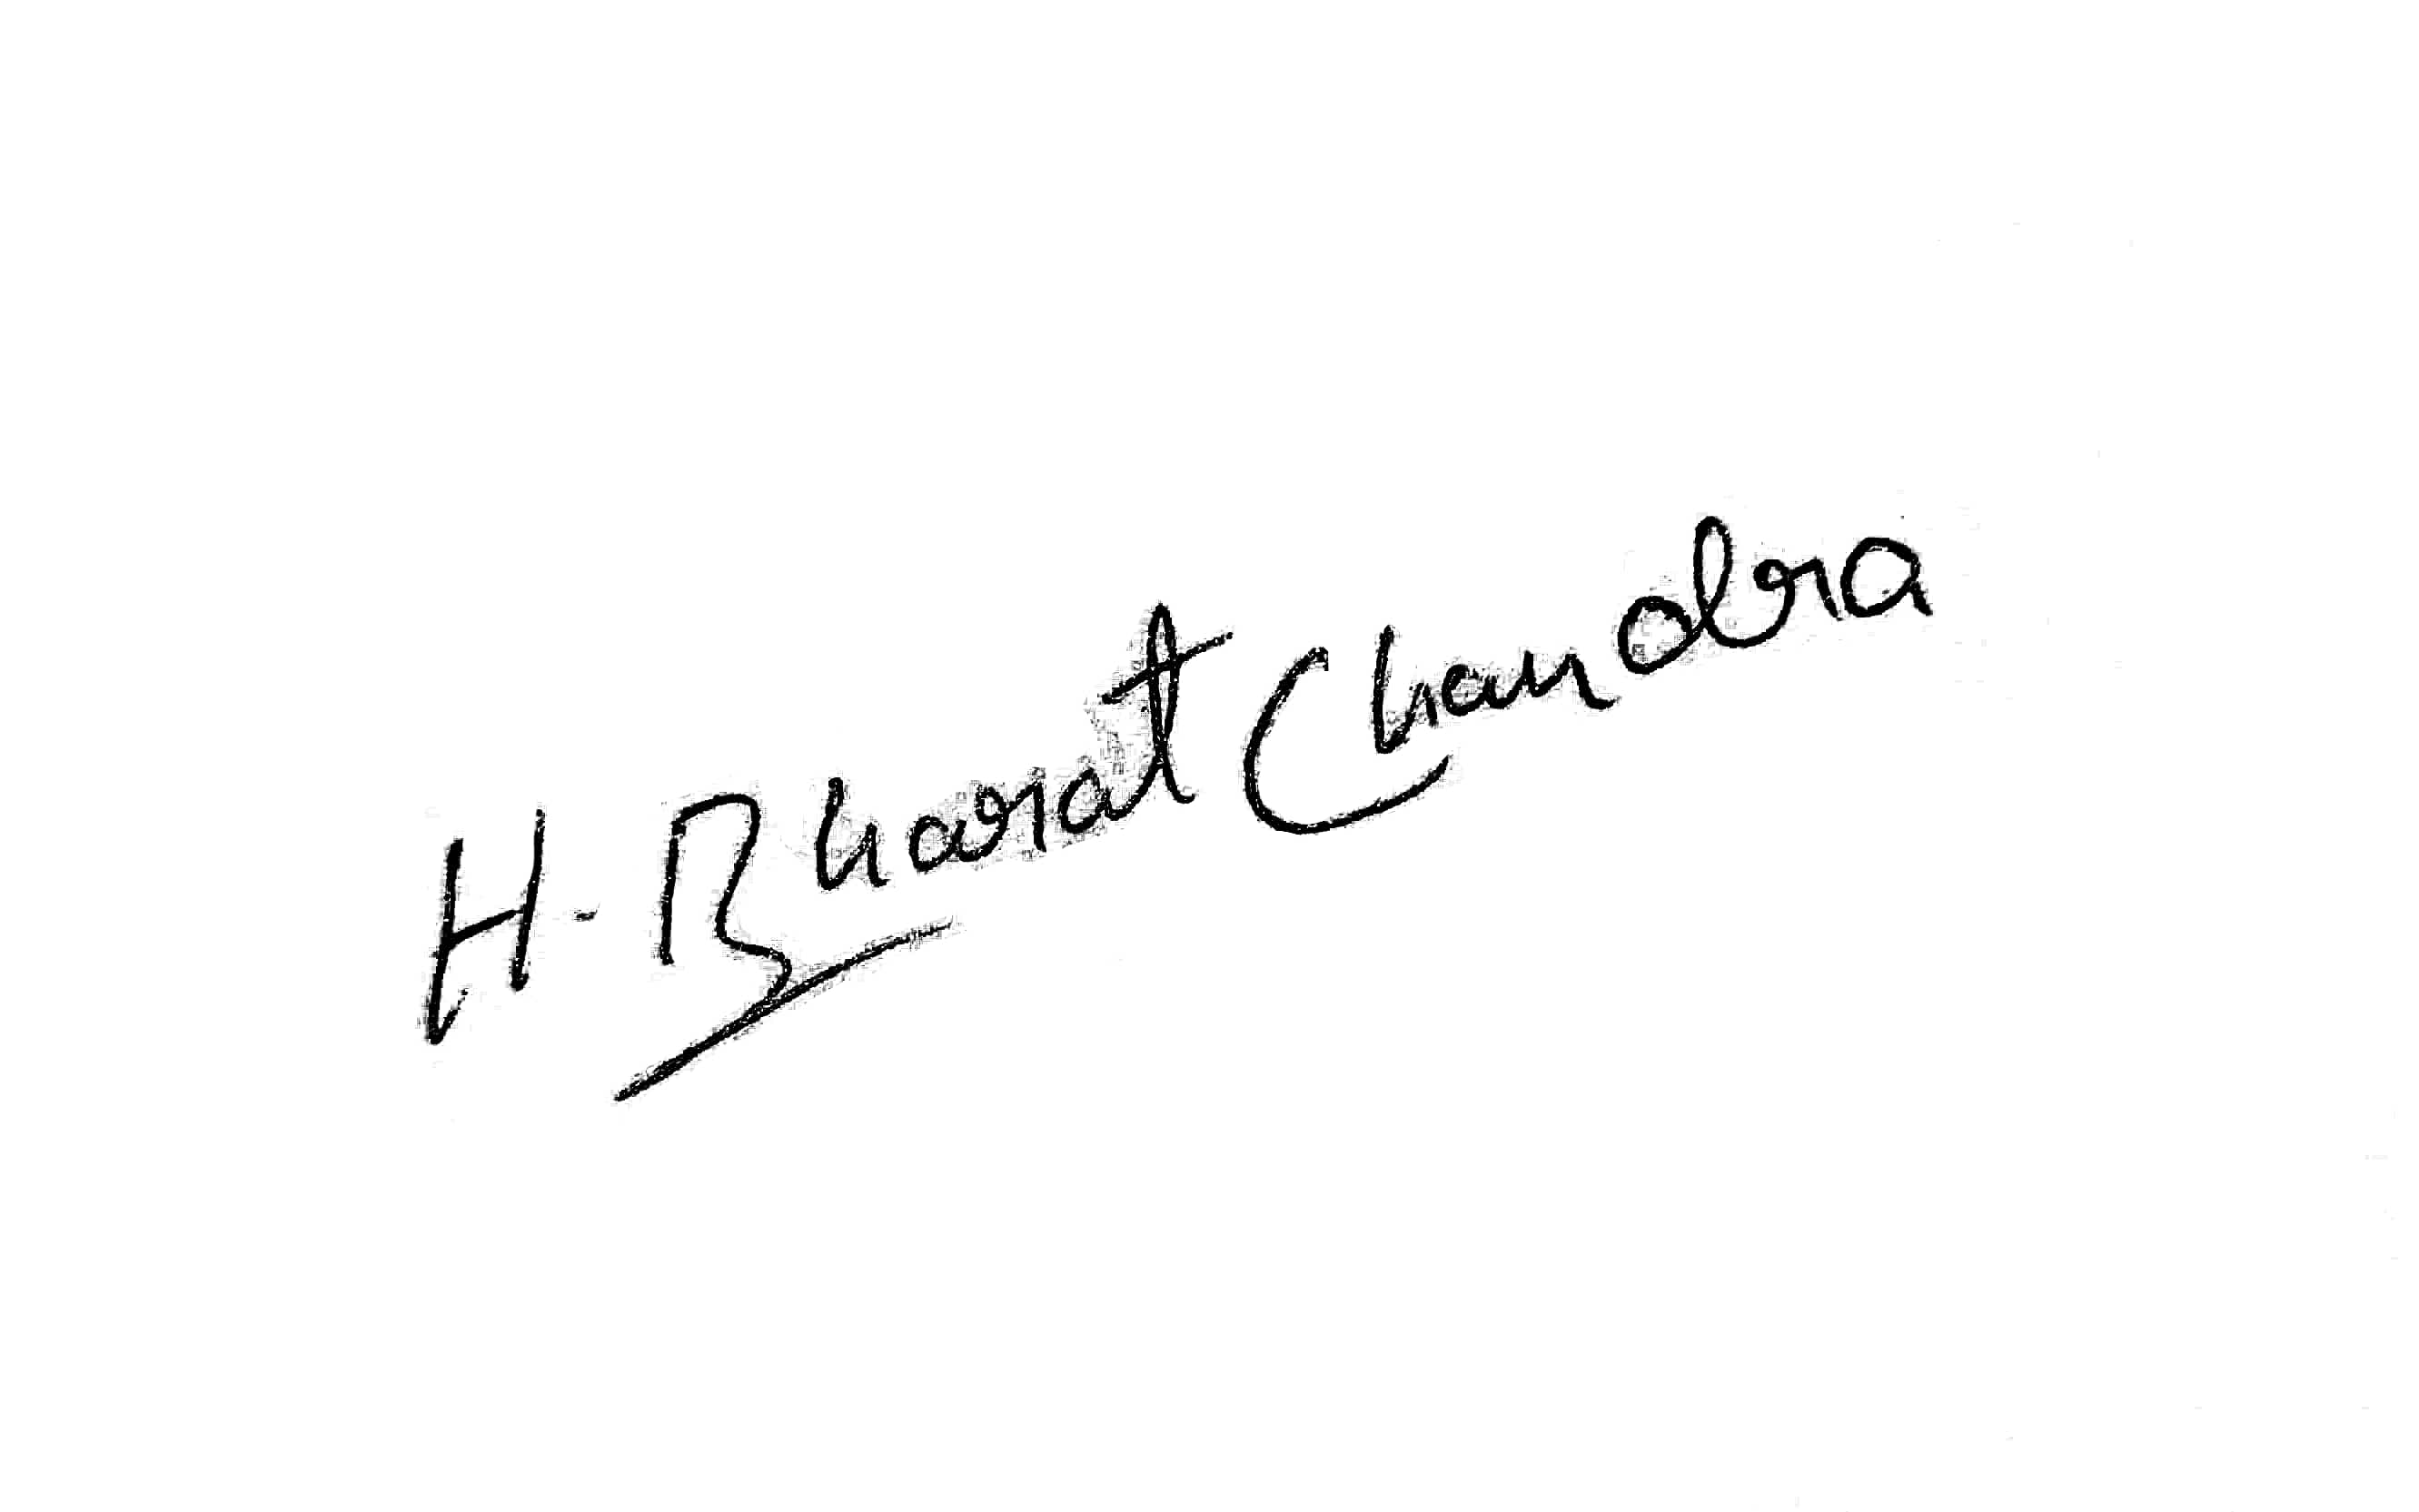 H. Bharat Chandra